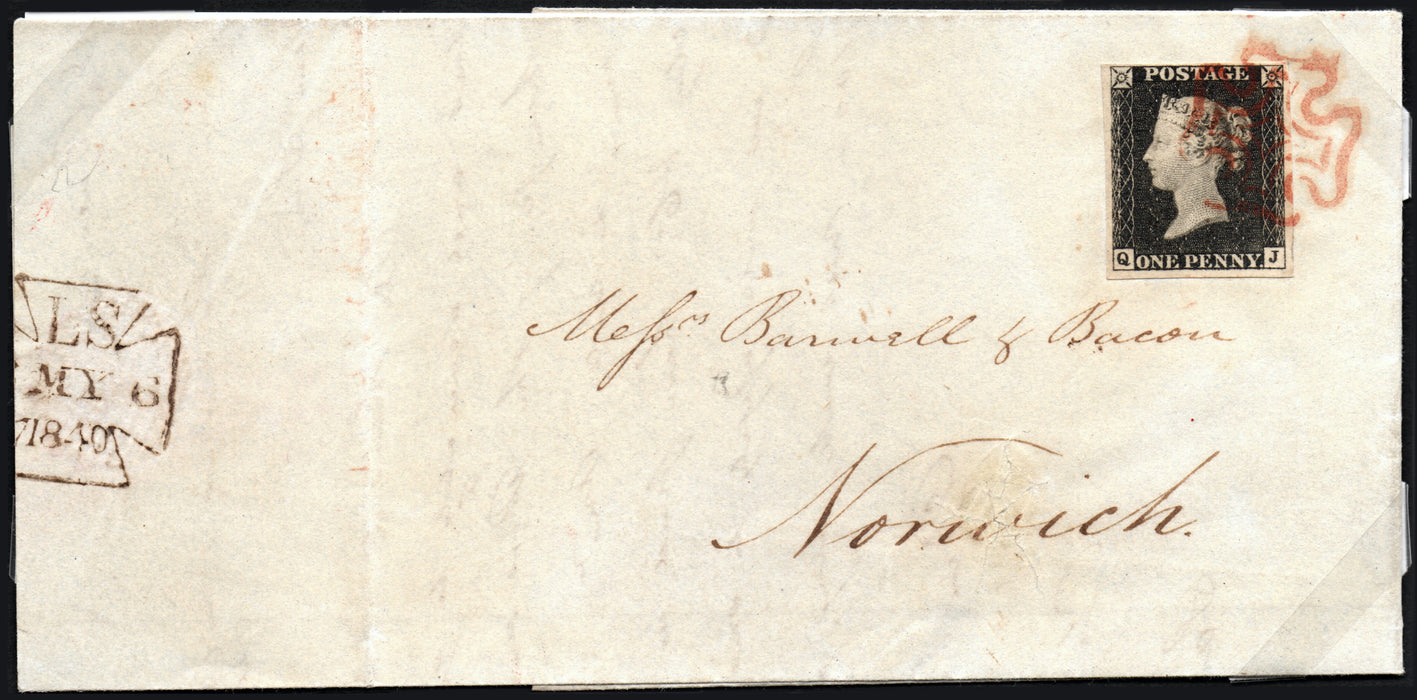 POSTAGE
Q ONE PENNY. J
LS
MY 6
1840
Messrs Barwell & Bacon
Norwich.